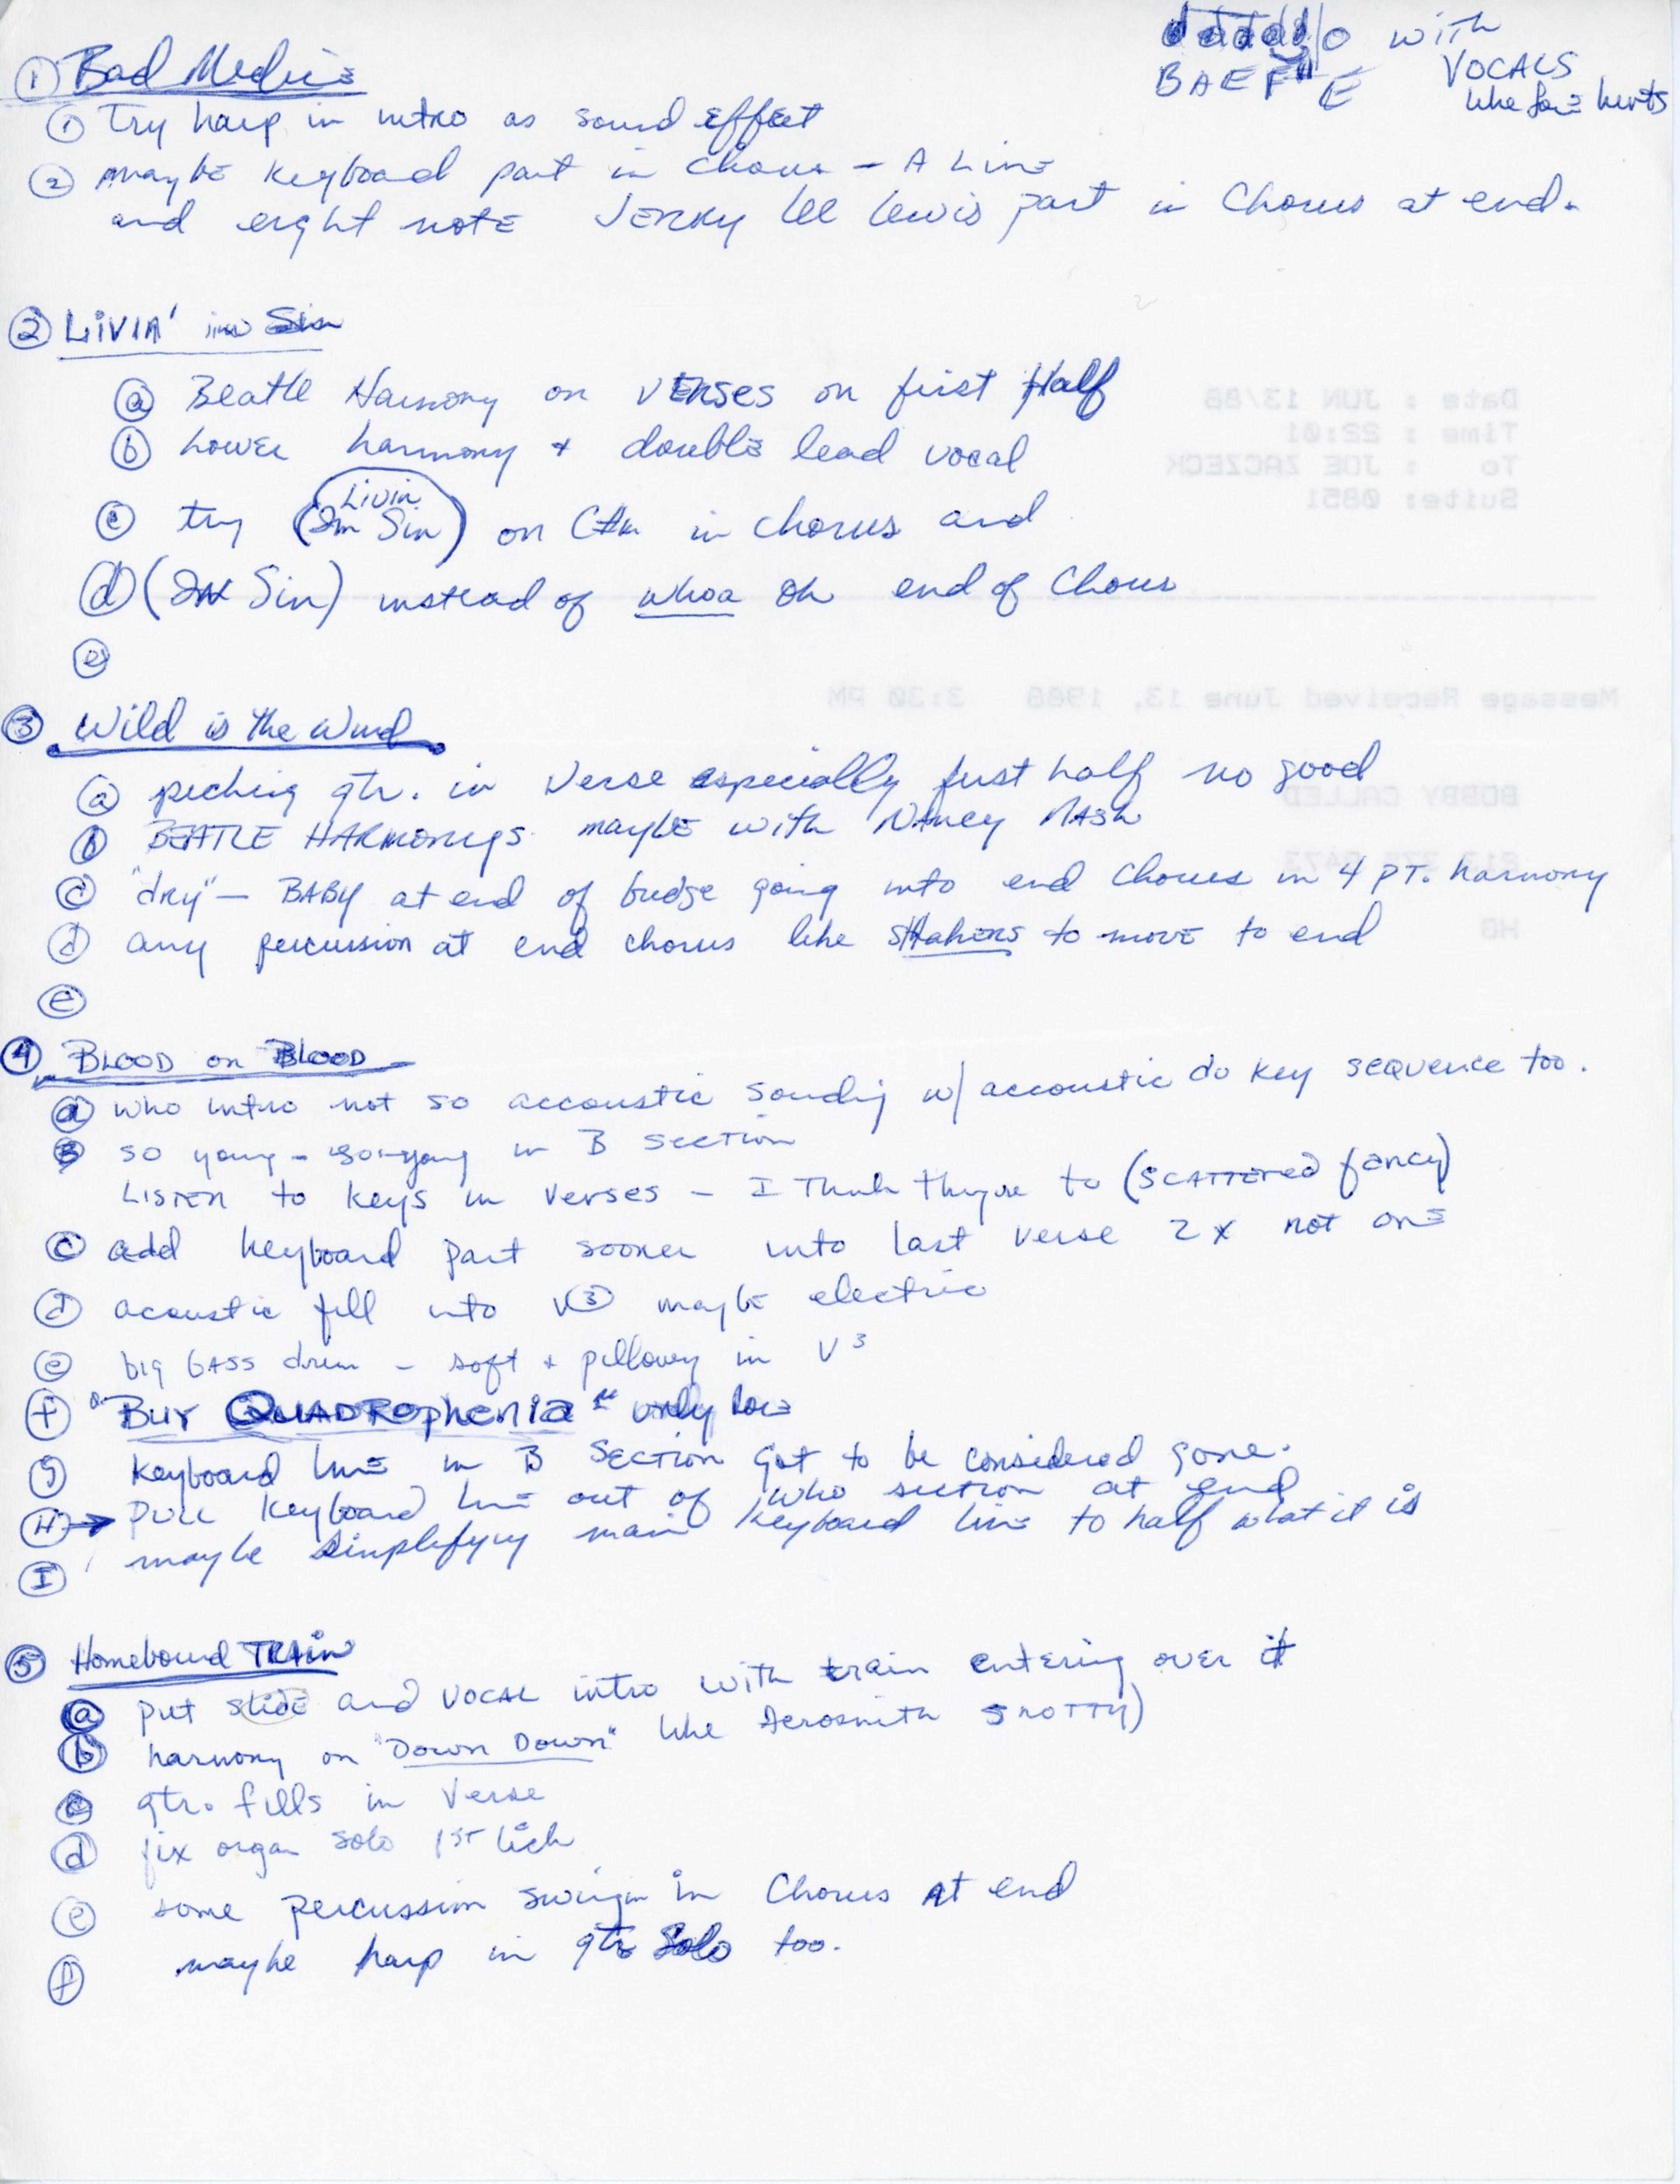 ① Bad Medicine
with
VOCALS
BAEF# E
like love hurts
① Try harp in intro as sound effect
② maybe keyboard part in chorus – A Line
and eight note Jerry Lee Lewis part in Chorus at end.
② Livin' in Sin
ⓐ Beatle Harmony on verses on first Half
ⓑ lower harmony + double lead vocal
ⓒ try (Livin In Sin) on C#m in chorus and
ⓓ (In Sin) instead of whoa oh end of Chorus
ⓔ
③ Wild is the Wind
ⓐ picking gtr. in Verse especially first half no good
ⓑ BEATLE HARMONYS maybe with Nancy Nash
ⓒ "dry" – BABY at end of bridge going into end Chorus in 4 PT. harmony
ⓓ any percussion at end chorus like SHakers to move to end
ⓔ
④ BLOOD on BLOOD
ⓐ who intro not so accoustic sounding w/ accoustic do key sequence too.
ⓑ so young – so young in B section
LISTEN to keys in verses – I Think theyre to (SCATTERED fancy)
ⓒ add keyboard part sooner into last verse 2x not one
ⓓ acoustic fill into v③ maybe electric
ⓔ big bass drum – soft + pillowy in V3
ⓕ "BUY QUADROphenia" only low
ⓖ keyboard line in B Section got to be considered gone.
Ⓗ → Pull keyboard line out of who section at end
maybe simplifyy main keyboard line to half what it is
Ⓘ
⑤ Homebound TRAin
ⓐ put slide and VOCAL intro with train entering over it
ⓑ harmony on "Down Down" like Aerosmith SNOTTY)
ⓒ gtr. fills in Verse
ⓓ fix organ solo 1ST lick
ⓔ some percussion swingin in Chorus At end
ⓕ maybe harp in gtr Solo too.
Date : JUN 13/88
Time : 22:01
To : JOE ZACZECK
Suite: 0851
Message Received June 13, 1988 3:30 PM
BOBBY CALLED
HB